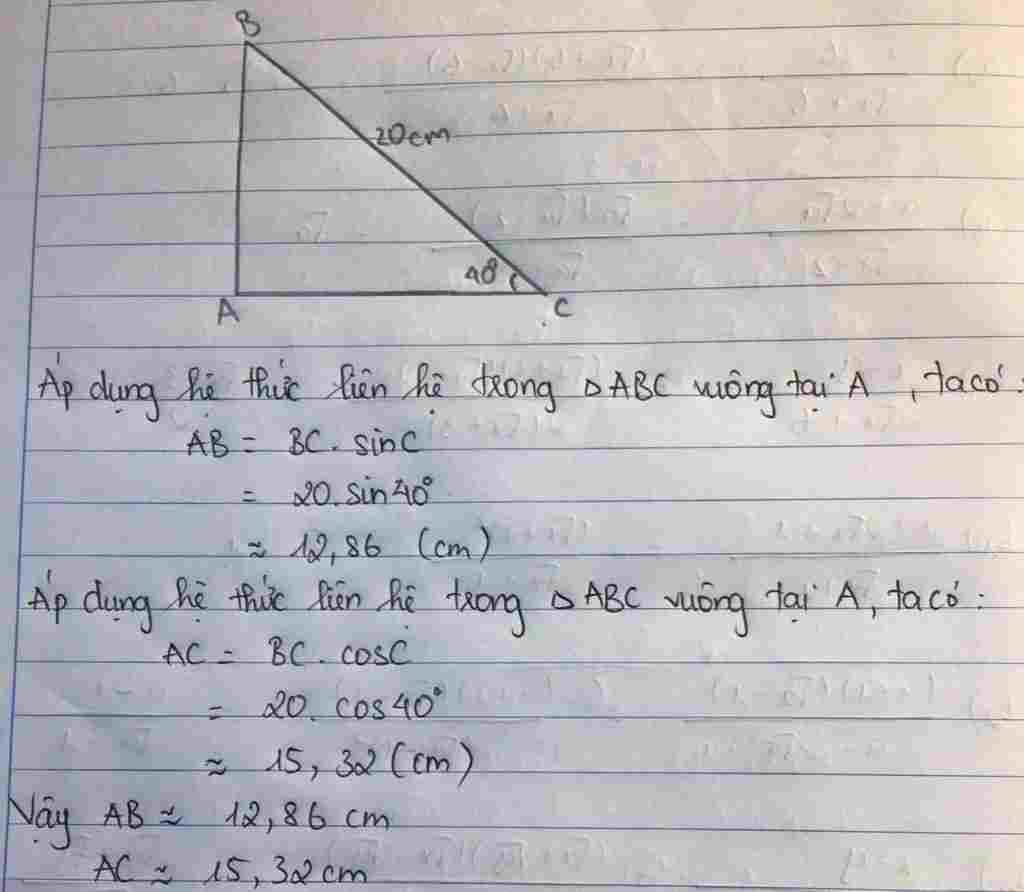 B
20cm
40°
A
C
Áp dụng hệ thức liên hệ trong △ABC vuông tại A, ta có:
AB = BC. sinC
= 20. sin40°
≈ 12,86 (cm)
Áp dụng hệ thức liên hệ trong △ABC vuông tại A, ta có:
AC = BC. cosC
= 20. cos40°
≈ 15,32 (cm)
Vậy AB ≈ 12,86 cm
AC ≈ 15,32cm